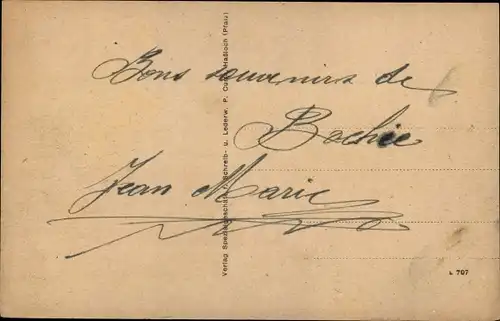 Bons souvenirs de
Bochie
Jean Marie
Verlag Spezialgeschäft f. Schreib- u. Lederw. P. Haßloch (Pfalz)
707